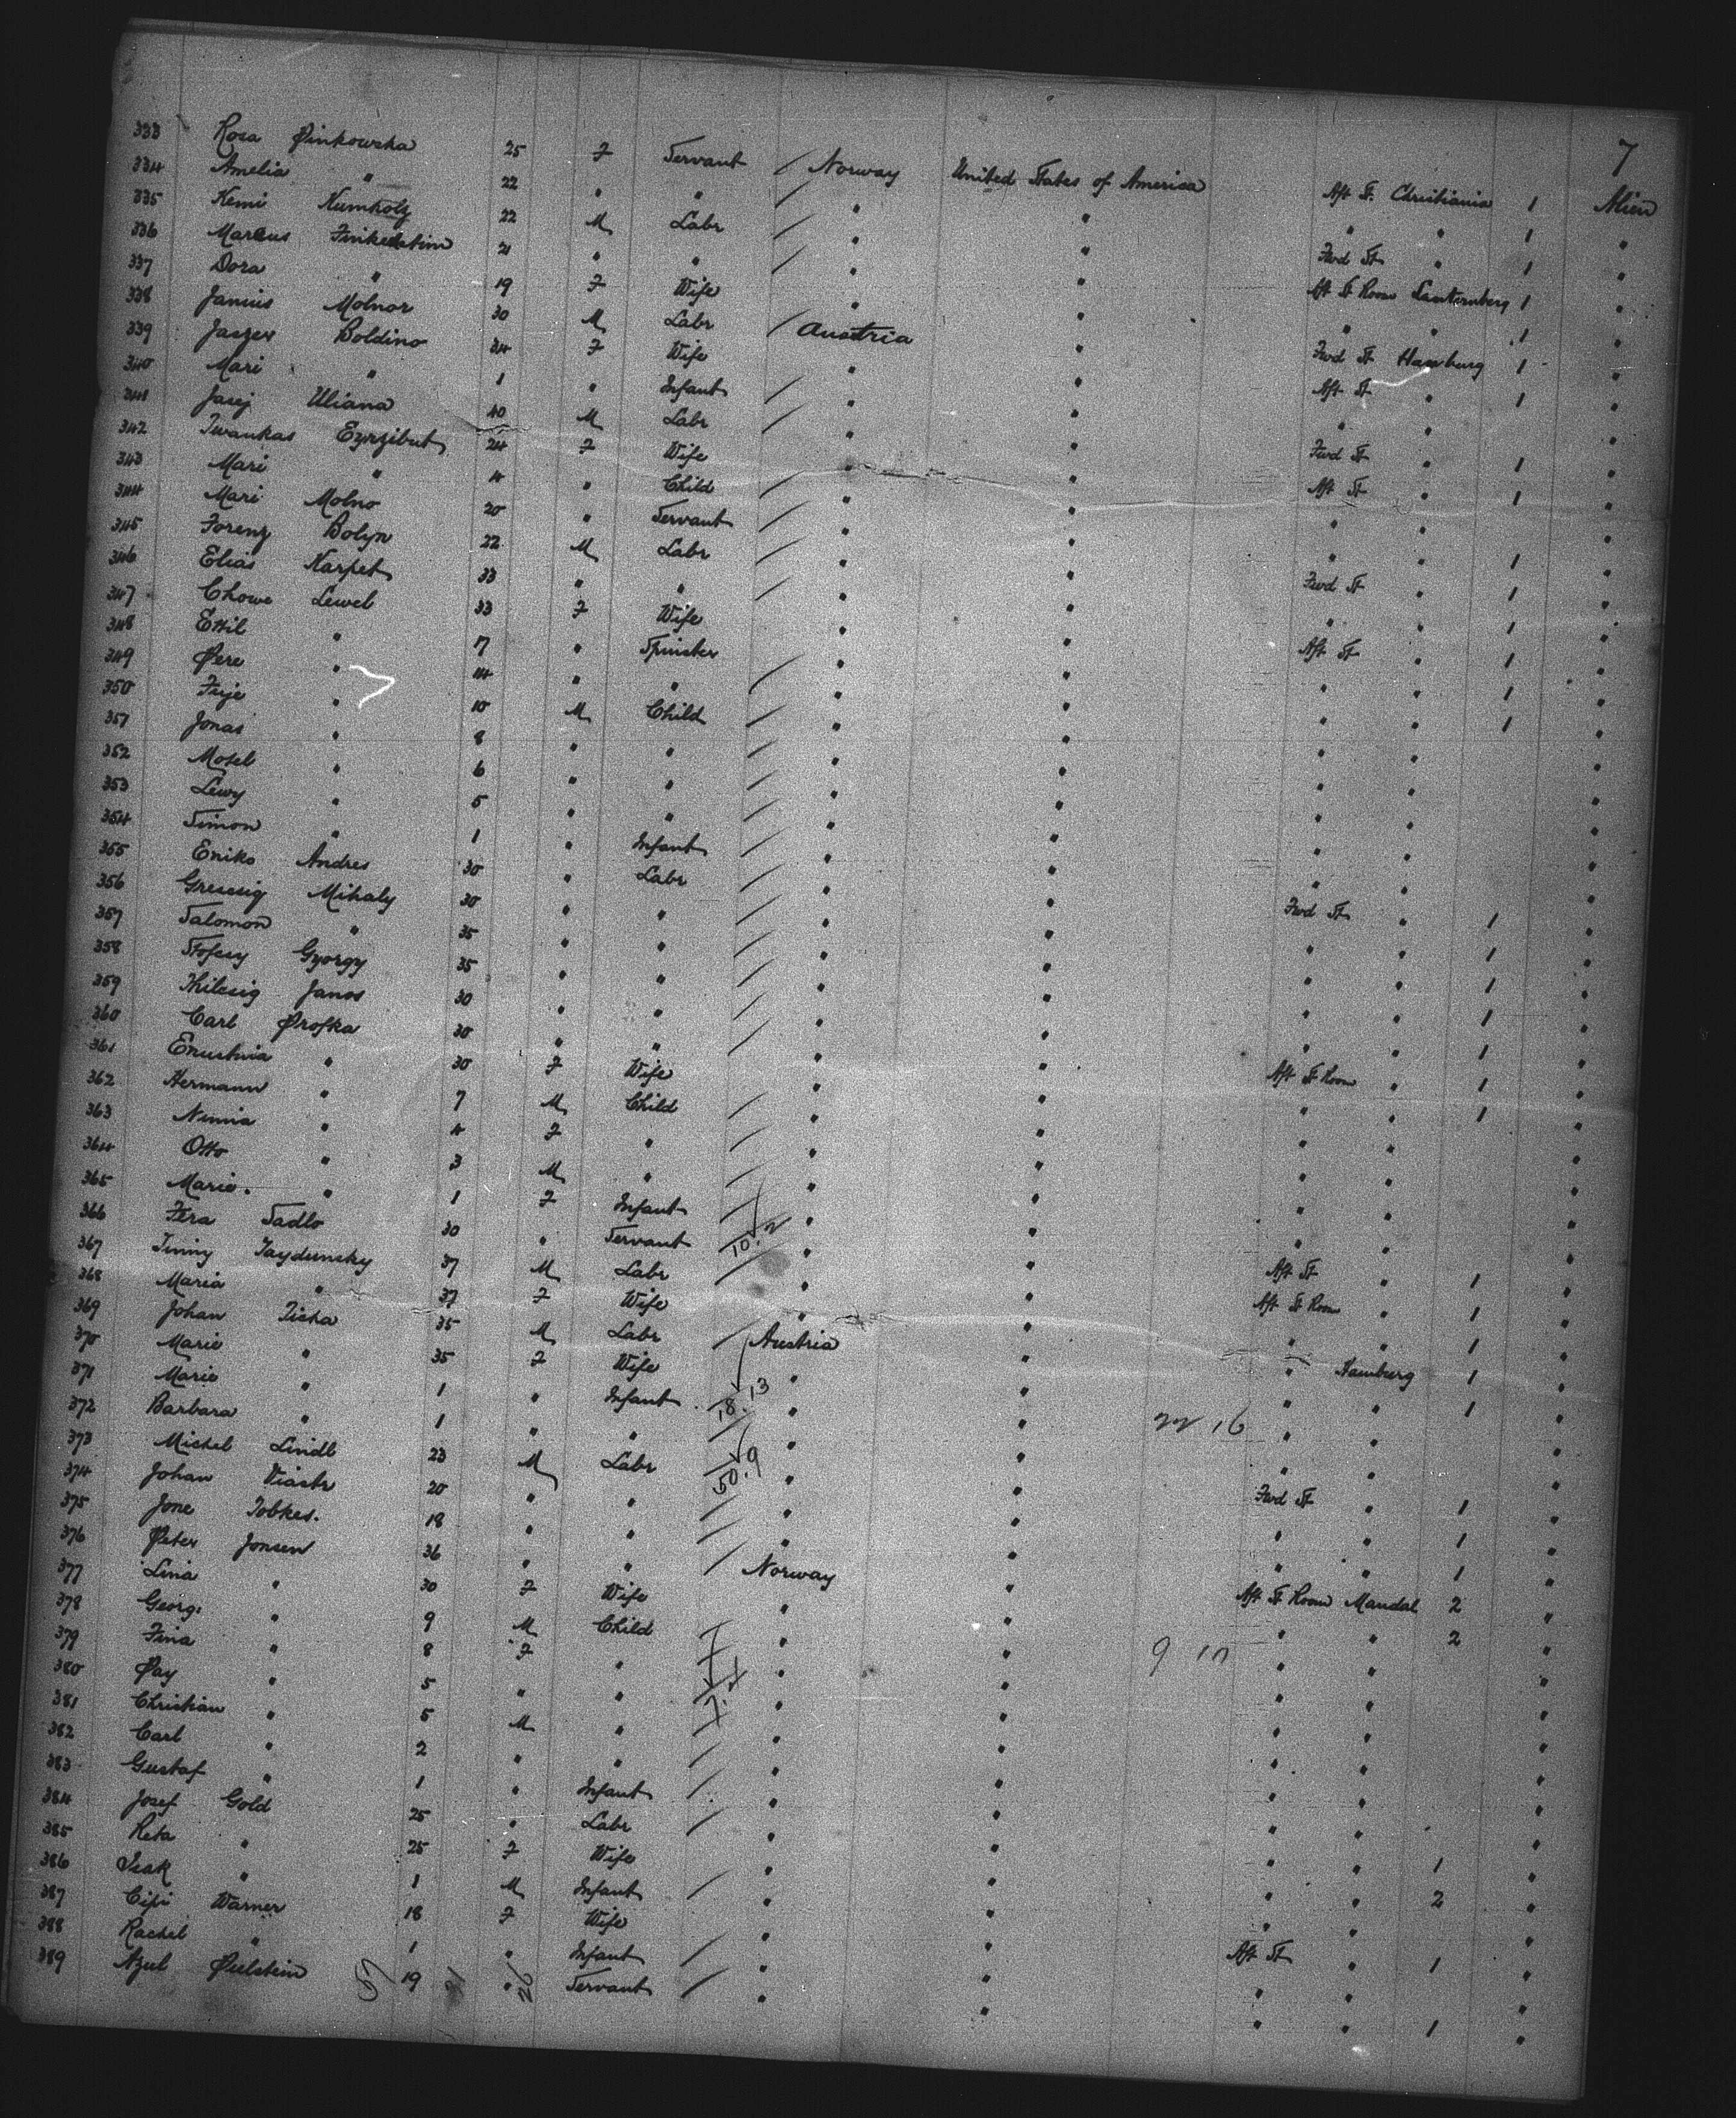 7
333 Rosa Pinkowska 25 F Servant / Norway United States of America Aft St. Christiania 1 Alien
334 Amelia " 22 " " / " " " " 1 "
335 Kemi Kumholz 22 M Labr / " " Fwd St " 1 "
336 Marcus Finkelstein 21 " " / " " Aft St Room Lauternberg 1 "
337 Dora " 19 F Wife " " " " 1 "
338 Janius Molnar 30 M Labr / Austria " Fwd St Hamburg 1 "
339 Jaszer Boldino 34 F Wife " " Aft St " 1 "
340 Mari " 1 " Infant / " " " " "
341 Jasej Uliana 40 M Labr / " " Fwd St " 1 "
342 Iwankas Ezrzibut 24 F Wife " " Aft St " 1 "
343 Mari " 4 " Child / " " " " "
344 Mari Molno 20 " Servant / " " " " 1 "
345 Forenz Bolyn 22 M Labr / " " Fwd St " 1 "
346 Elias Karpet 33 " " / " " " " 1 "
347 Chowe Lewel 33 F Wife " " Aft St " 1 "
348 Ettil " 17 " Spinster " " " " 1 "
349 Pere " 14 " " / " " " " 1 "
350 Fuje " 10 M Child / " " " " "
351 Jonas " 8 " " / " " " " "
352 Mosel " 6 " " / " " " " "
353 Lewy " 5 " " / " " " " "
354 Simon " 1 " Infant / " " " " "
355 Eniko Andres 30 " Labr / " " Fwd St " 1 "
356 Grescsig Mihaly 30 " " / " " " " 1 "
357 Salomon " 35 " " / " " " " 1 "
358 Gyorgy 35 " " / " " " " 1 "
359 Khilcsig Janos 30 " " / " " " " 1 "
360 Carl Profka 30 " " / " " Aft St Room " 1 "
361 30 F Wife " " " " 1 "
362 Hermann " 7 M Child / " " " " "
363 " 4 F " / " " " " "
364 Otto " 3 M " / " " " " "
365 Marie. " 1 F Infant / " " " " "
366 Fera Sadlo 30 " Servant / 10.2 " " Aft St " 1 "
367 Jinny Taydunsky 37 M Labr / " " Aft St Room " 1 "
368 Maria " 37 F Wife " " " " 1 "
369 Johan Ticha 35 M Labr / Austria " " Hamburg 1 "
370 Marie " 35 F Wife " " " " 1 "
371 Marie " 1 " Infant 18.13 " " 22 16 " " "
372 Barbara " 1 " " / " " " " "
373 Michel Lindl 23 M Labr 50.9 " " Fwd St " 1 "
374 Johan 20 " " / " " " " 1 "
375 Jone Tobkes. 18 " " / " " " " 1 "
376 Peter Jonsen 36 " " / Norway " Aft St Room Mandal 2 "
377 Lina " 30 F Wife " " " " 2 "
378 Georg. " 9 M Child / " " 9 10 " " "
379 Fina " 8 F " / " " " " "
380 Pay " 5 " " 7.4 " " " " "
381 Christian " 5 M " / " " " " "
382 Carl " 2 " " / " " " " "
383 Gustaf " 1 " Infant / " " " " "
384 Josef Gold 25 " Labr / " " " " 1 "
385 Reta " 25 F Wife " " " " 2 "
386 Isak " 1 M Infant / " " " " "
387 Cipi Warner 18 F Wife " " Aft St " 1 "
388 Rachel " 1 " Infant / " " " " "
389 Azul Peelstein 57 19 " 26 Servant / " " " " 1 "